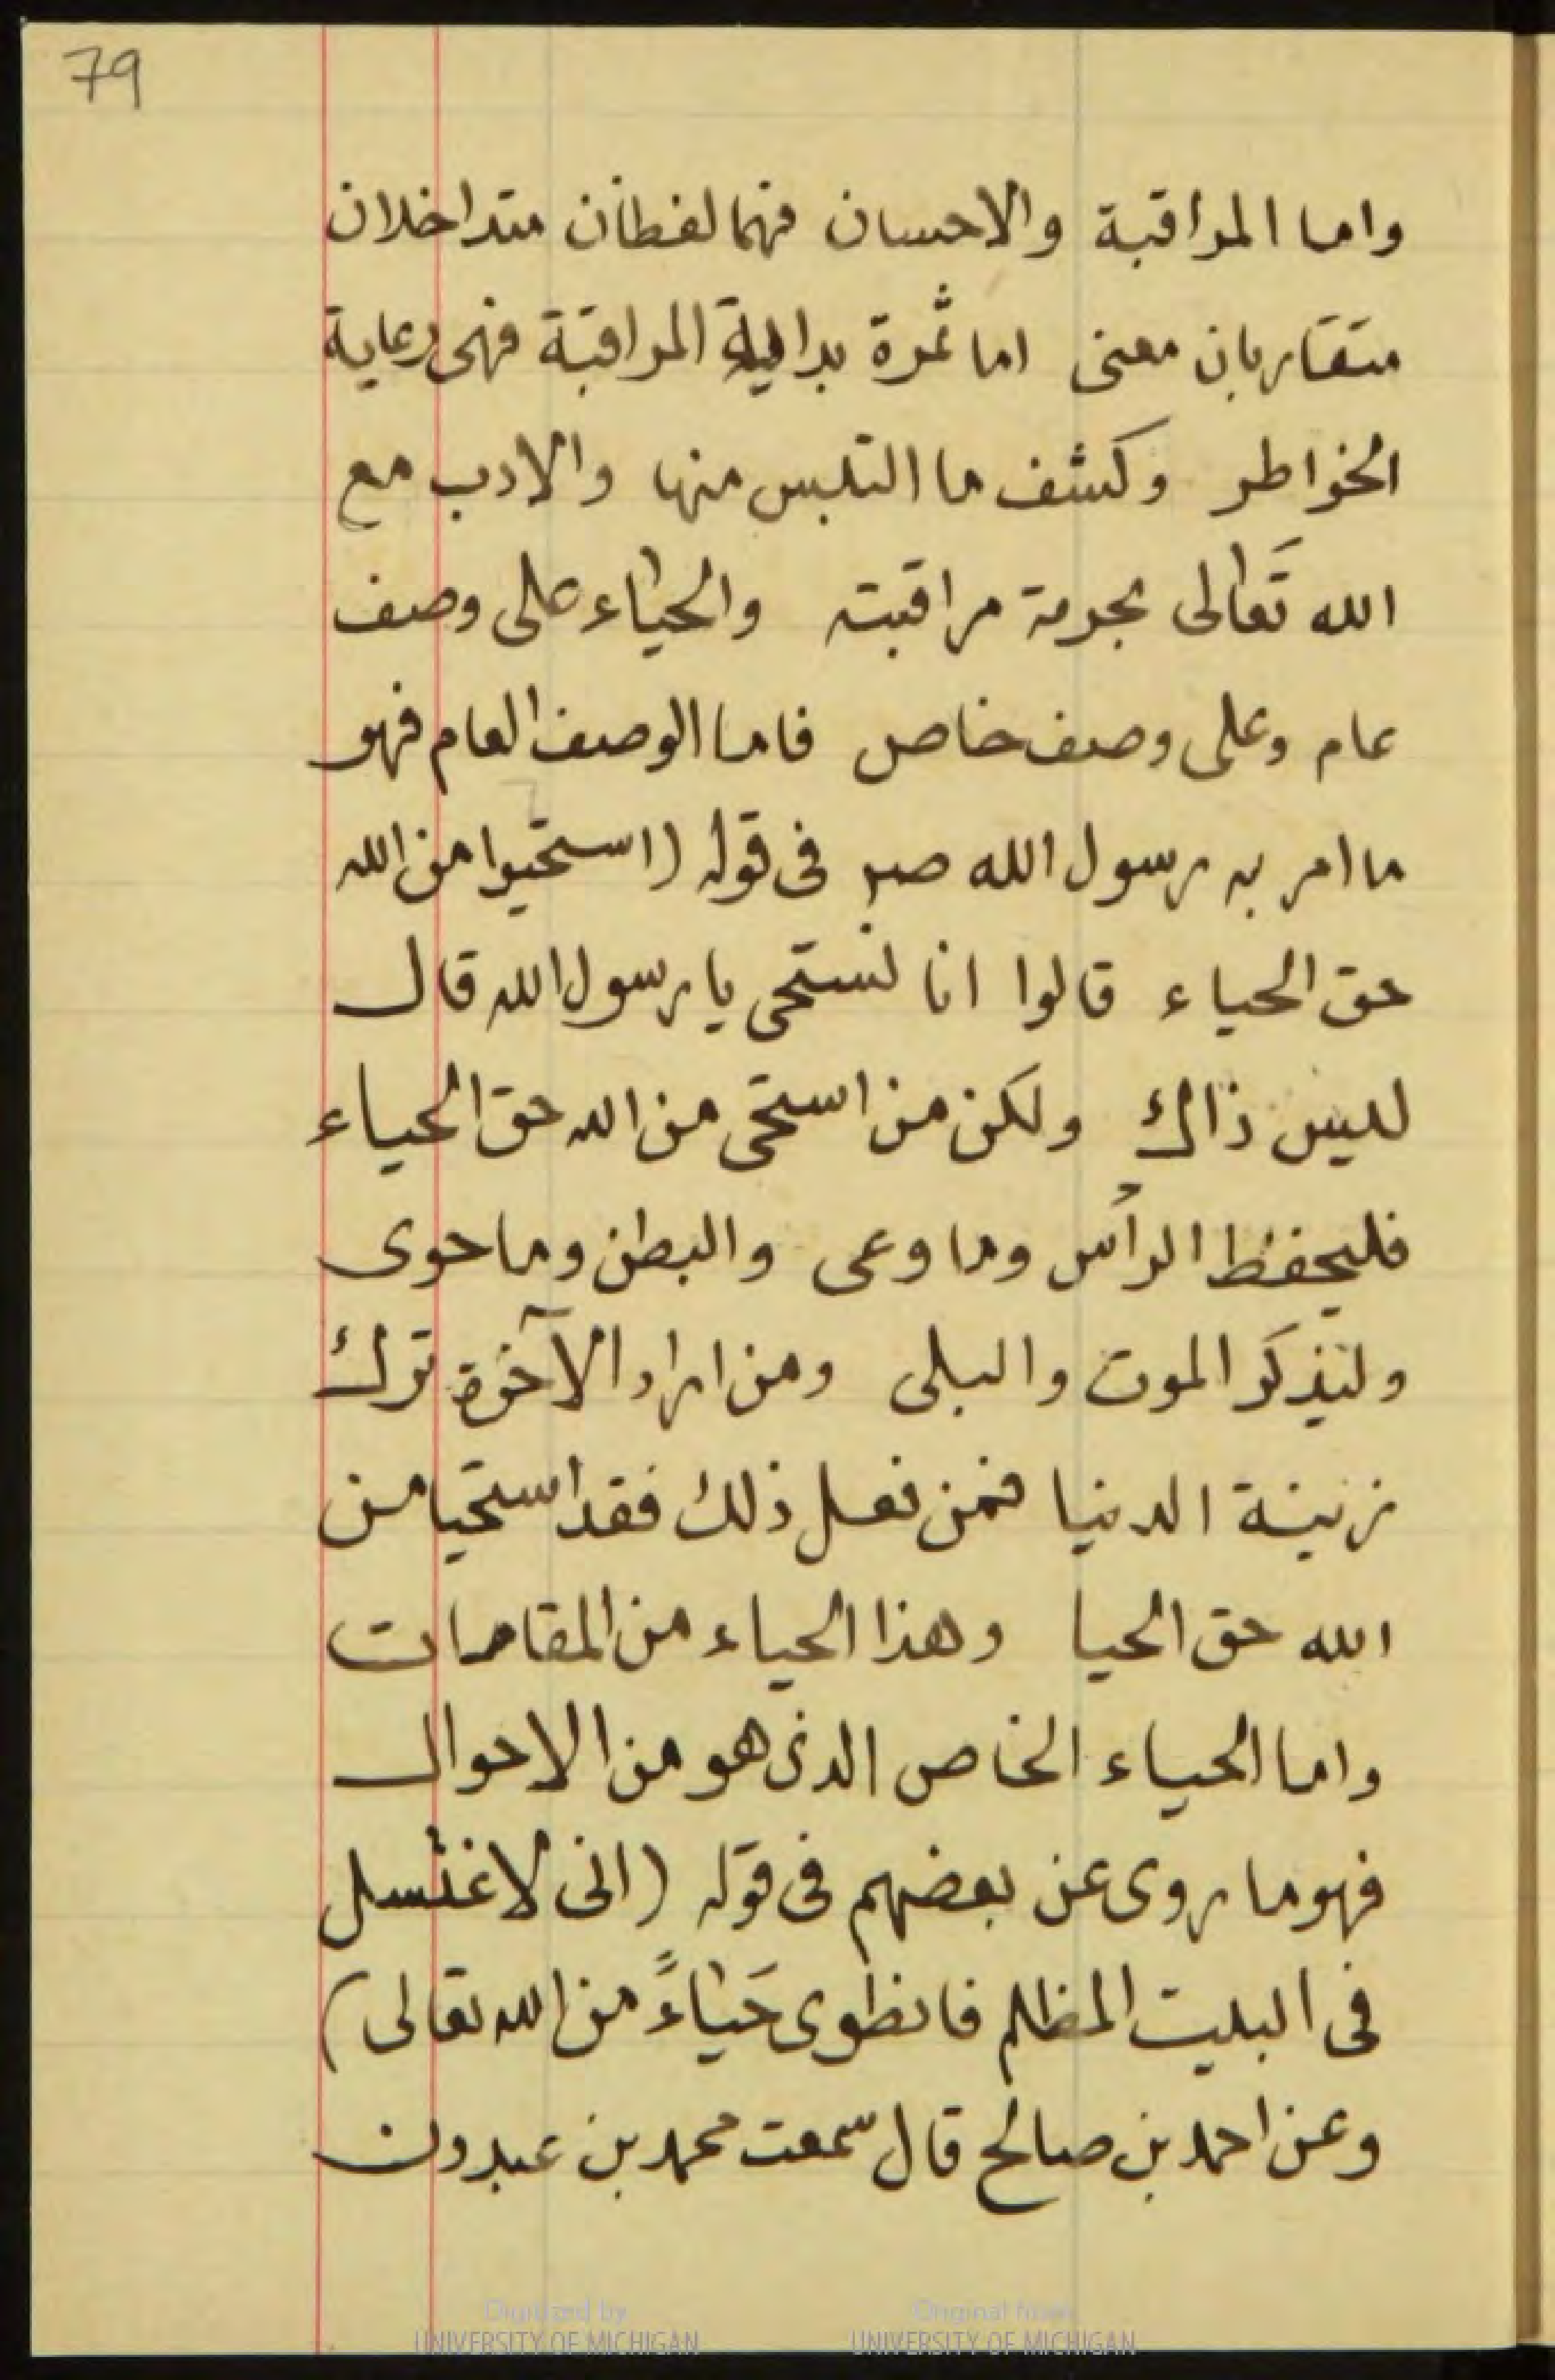 79
واما المراقبة والاحسان فهما لفظان متداخلان
متقاربان معنى اما ثمرة بداية المراقبة فهى رعاية
الخواطر وكشف ما التبس منها والادب مع
الله تعالى بحرمة مراقبته والحياء على وصف
عام وعلى وصف خاص فاما الوصف العام فهو
ما امر به رسول الله صم فى قوله (استحيوا من الله
حق الحياء قالوا انا نستحى يا رسول الله قال
ليس ذاك ولكن من استحى من الله حق الحياء
فليحفظ الرأس وما وعى والبطن وما حوى
وليذكر الموت والبلى ومن اراد الآخرة ترك
زينة الدنيا فمن فعل ذلك فقد استحيا من
الله حق الحيا وهذا الحياء من المقامات
واما الحياء الخاص الذى هو من الاحوال
فهو ما روى عن بعضهم فى قوله (انى لاغتسل
فى البيت المظلم فانطوى حَياءً من الله تعالى)
وعن احمد بن صالح قال سمعت محمد بن عبدون
Digitized by
UNIVERSITY OF MICHIGAN
Original from
UNIVERSITY OF MICHIGAN